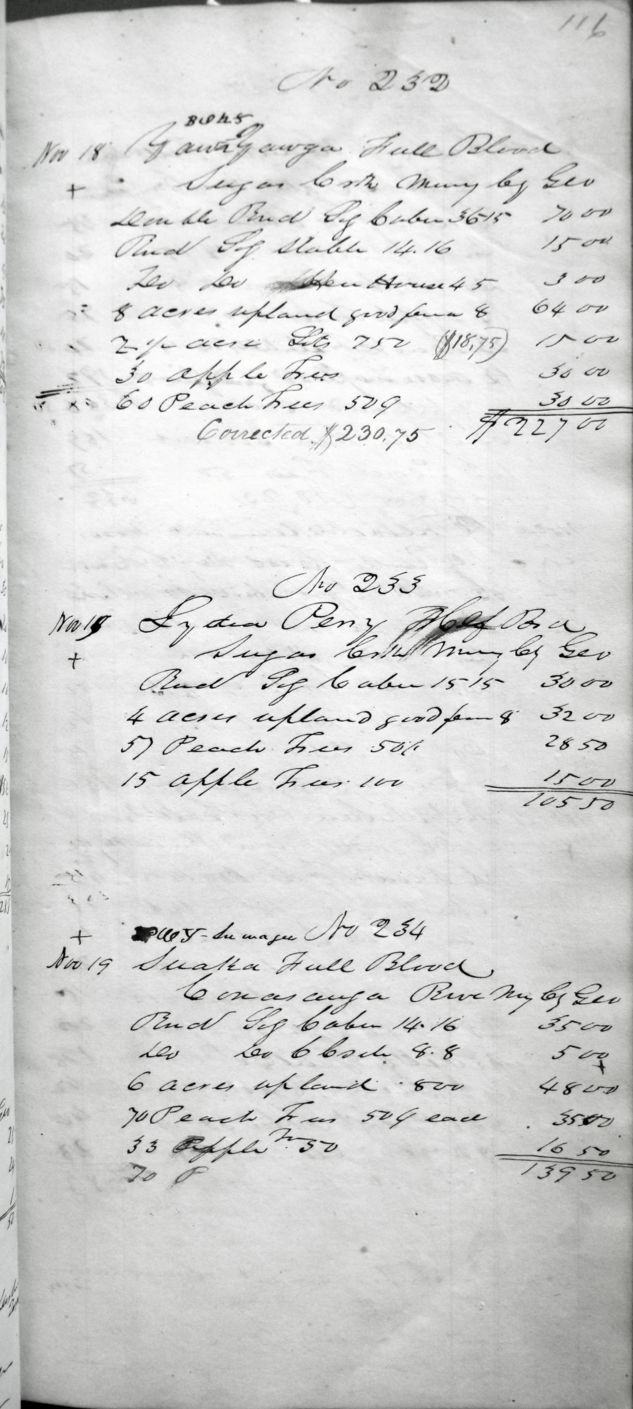 116
No 232
Nov 18 Yawn Yawga Full Blood
+ Sugar Crk Mury Cy Geo
Double Rnd Lg Cabn 36 15 70 00
Rnd Lg Stable 14.16 15 00
Do Do Hen House 4 5 3 00
8 acres upland good fence 8 64 00
2 1/2 acre Lots 750 ($18.75) 15 00
30 apple Trees 30 00
60 Peach Trees 50¢ 30 00
Corrected $230.75 $227 00
No 233
Nov 19 Lydia Perry Half Brd
+ Sugar Crk Mury Cy Geo
Rnd Lg Cabn 15 15 30 00
4 acres upland good fenc 8 32 00
57 Peach Trees 50¢ 28 50
15 apple Trees 100 15 00
105 50
+ No 234
Nov 19 Suaka Full Blood
Conasauga River My Cy Geo
Rnd Lg Cabn 14.16 35 00
Do Do 8.8 5 00
+
6 acres upland 800 48 00
70 Peach Trees 50¢ each 35 00
33 Apple Tr 50 16 50
70 P 139 50